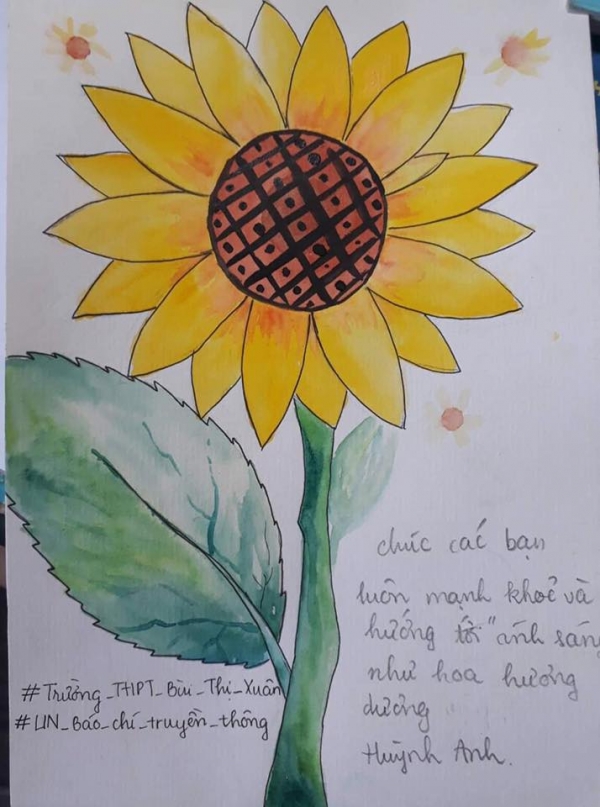 chúc các bạn
luôn mạnh khoẻ và
hướng tới "ánh sáng
như hoa hướng
dương
Huỳnh Anh.
#Trường_THPT_Bùi_Thị_Xuân
#LIN_Báo_chí_truyền_thông